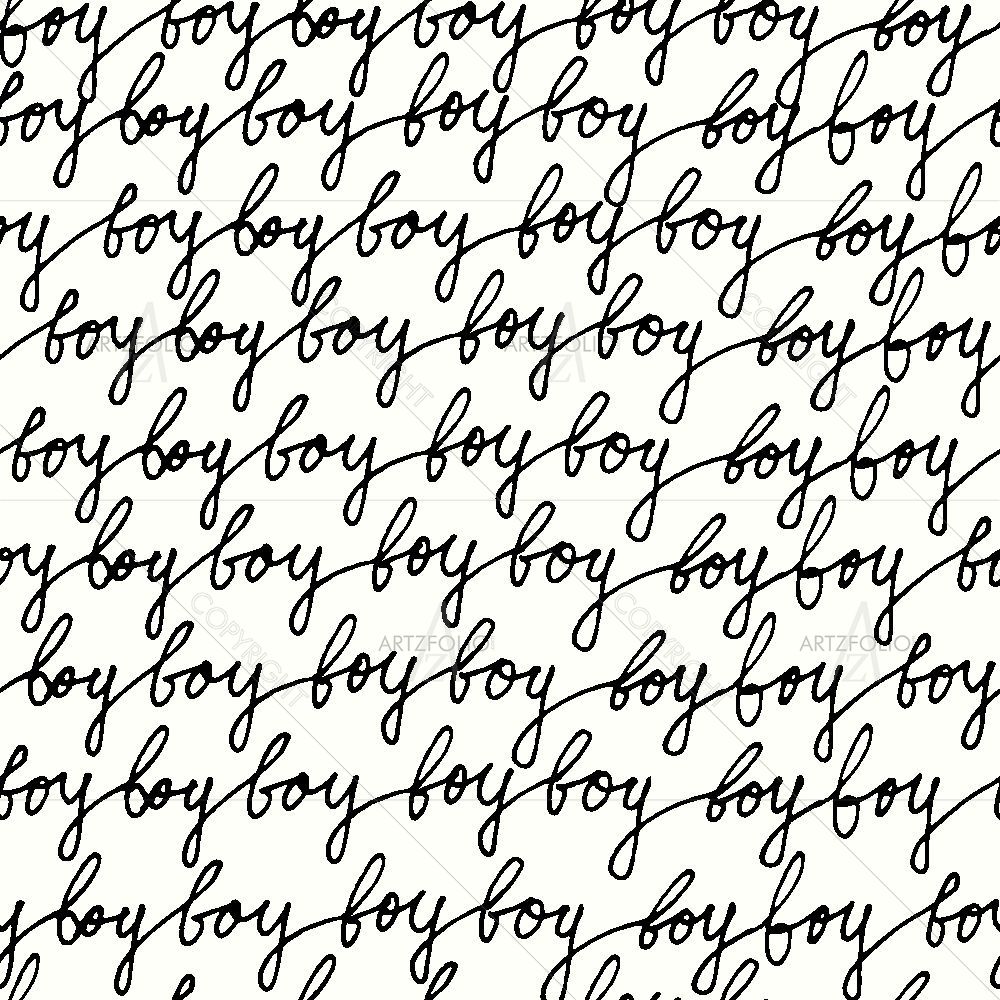 boy boy boy boy boy boy boy
boy boy boy boy boy boy boy
boy boy boy boy boy boy
boy boy boy boy boy boy boy
ARTZFOLIO ARTZFOLIO
COPYRIGHT COPYRIGHT
boy boy boy boy boy boy boy
boy boy boy boy boy boy
COPYRIGHT COPYRIGHT
ARTZFOLIO ARTZFOLIO
boy boy boy boy boy boy boy
boy boy boy boy boy boy boy
boy boy boy boy boy boy